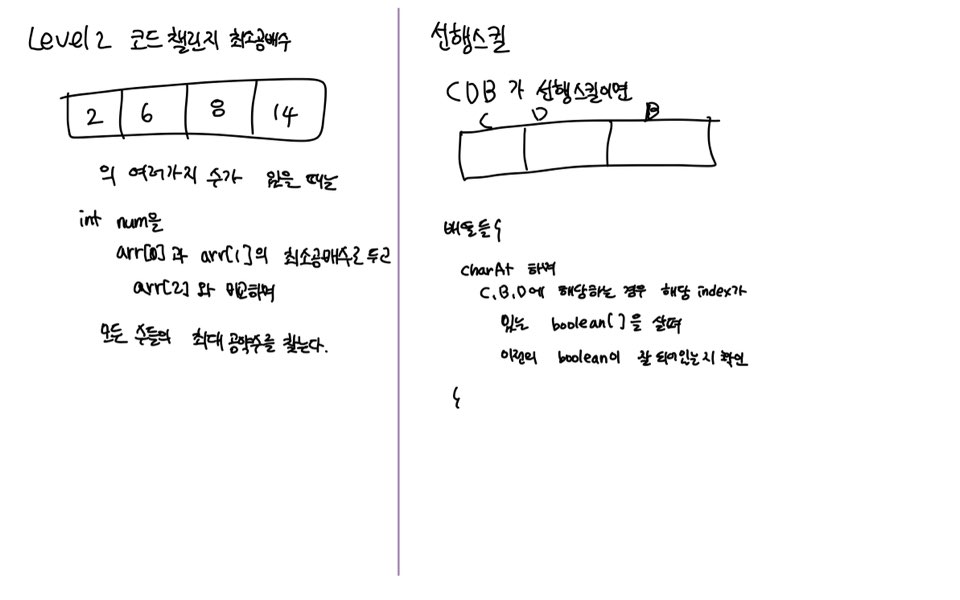 Level 2 코드 챌린지 최소공배수
2 6 8 14
의 여러가지 수가 있을 때는
int num을
arr[0]과 arr[1]의 최소공배수로 두고
arr[2]와 비교하며
모든 수들의 최대공약수를 찾는다.
선행스킬
CDB가 선행스킬이면
C D B
배로들{
charAt 하며
C,B,D에 해당하는 경우 해당 index가
있는 boolean[]을 살펴
이전의 boolean이 잘 되어있는지 확인
{